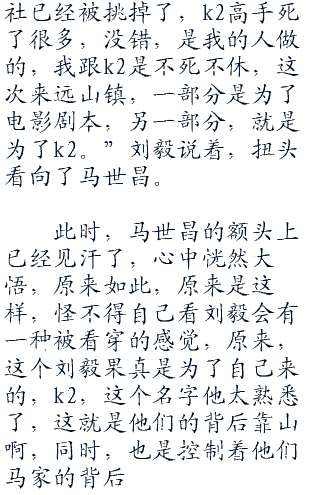 社已经被挑掉了，k2高手死
了很多，没错，是我的人做
的，我跟k2是不死不休，这
次来远山镇，一部分是为了
电影剧本，另一部分，就是
为了k2。”刘毅说着，扭头
看向了马世昌。
此时，马世昌的额头上
已经见汗了，心中恍然大
悟，原来如此，原来是这
样，怪不得自己看刘毅会有
一种被看穿的感觉，原来，
这个刘毅果真是为了自己来
的，k2，这个名字他太熟悉
了，这就是他们的背后靠山
啊，同时，也是控制着他们
马家的背后